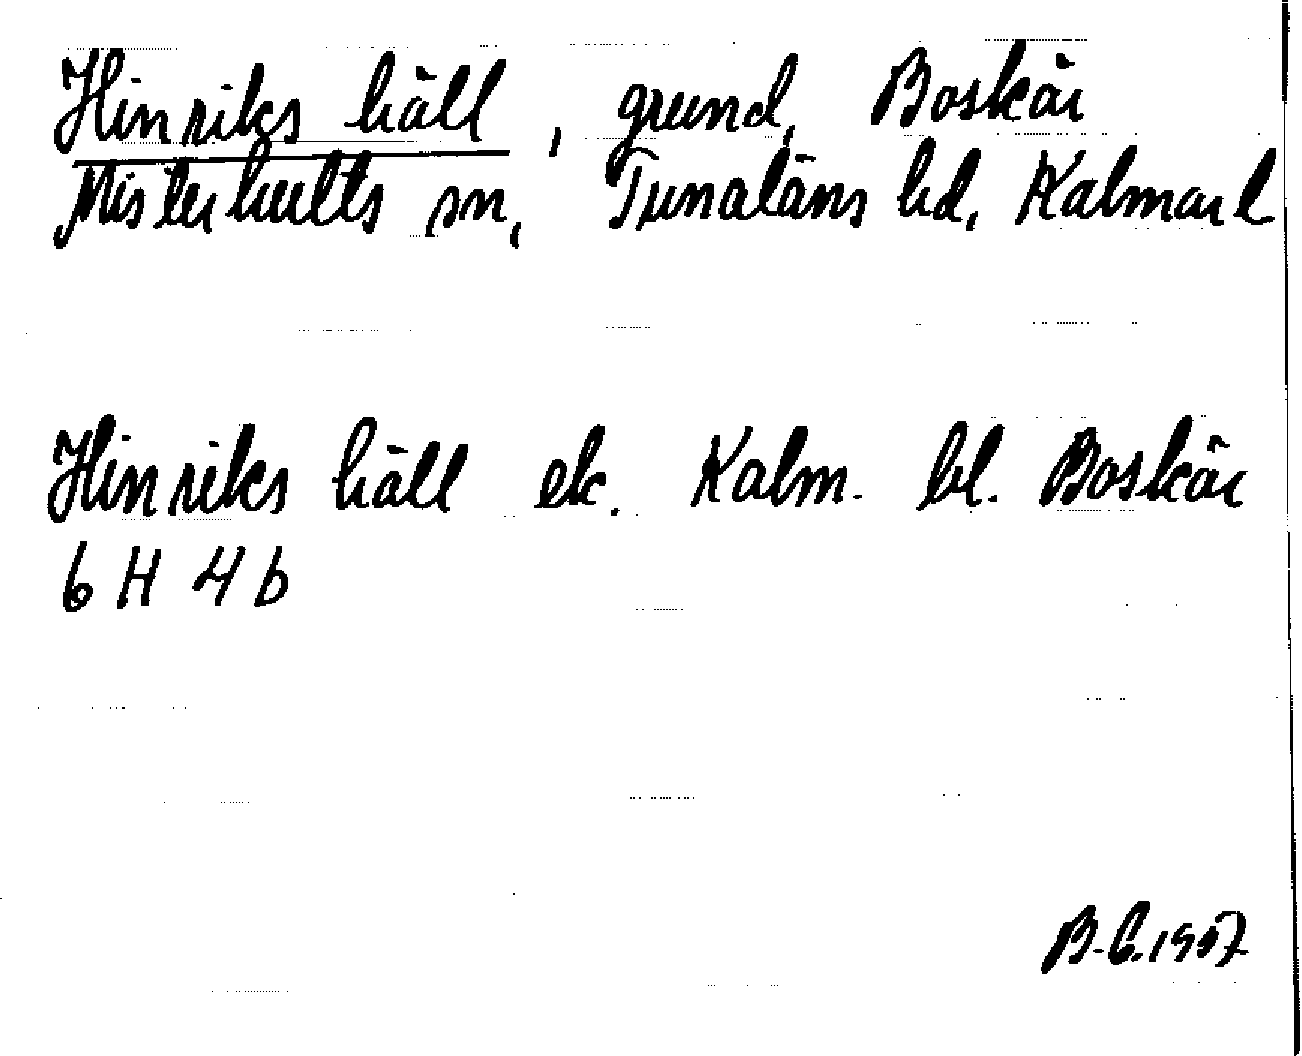 Hinriks häll, grund, Boskär
Misterhults sn, Tunaläns hd, Kalmar l
Hinriks häll ek. Kalm. bl. Boskär
6 H 4 b